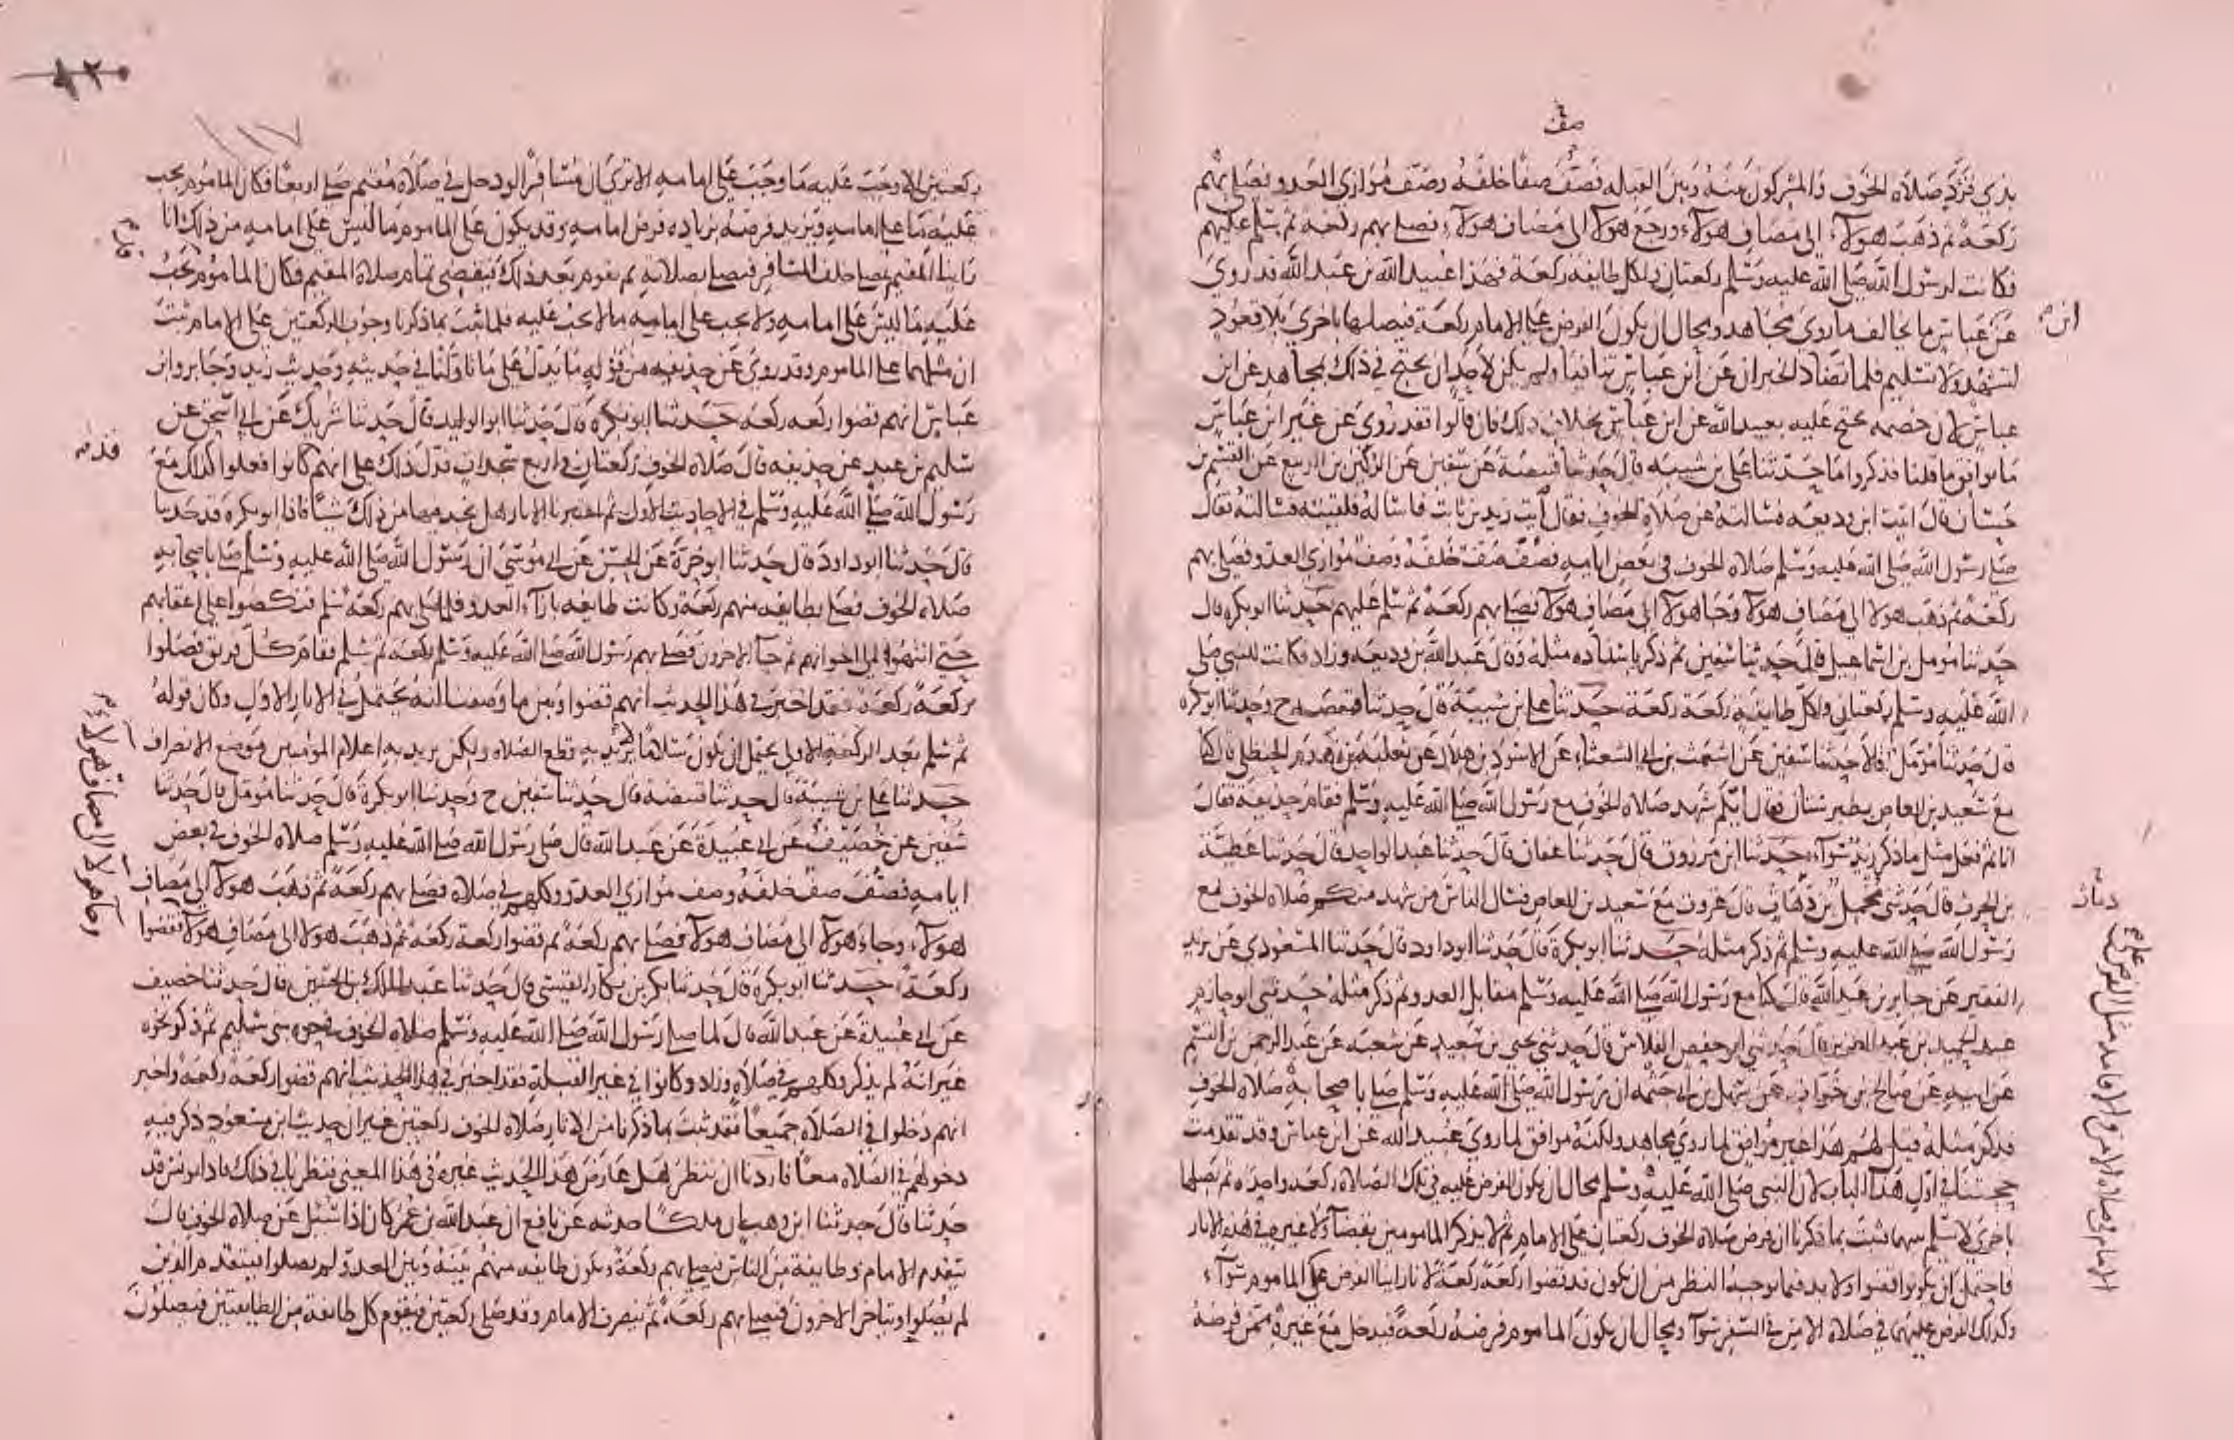 صف
بذي قرد صلاه الخوف والمشركون بينه وبين القبله فصف صفا خلفه وصف موازي العدو فصلى بهم
ركعة ثم ذهب هولاء الى مصاف هولاء ورجع هولاء الى مصاف هولاء فصلى بهم ركعه ثم سلم عليهم
فكانت لرسول الله صلى الله عليه وسلم ركعتان ولكل طايفه ركعة فهذا عبيد الله بن عبد الله قد روى
عن عباس ما يخالف ما روى مجاهد ومحال ان يكون الفرض على الامام ركعة فيصلها باخرى بلا قعود
ابن
لتشهد ولا تسليم فلما تضاد الخبران عن ابن عباس تنافيا ولم يكن لاحد ان يحتج في ذلك بمجاهد عن ابن
عباس لان خصمه يحتج عليه بعبيد الله عن ابن عباس بخلاف ذلك فان قالوا فقد روي عن غير ابن عباس
ما يوافق ما قلنا فذكروا ما حدثنا علي بن شيبه قال حدثنا قبيصة عن سفين عن الركين بن الربيع عن القسم بن
حسان قال اتيت ابن وديعه فسالته عن صلاة الخوف فقال ايت زيد بن ثابت فاساله فلقيته فسالته فقال
صلى رسول الله صلى الله عليه وسلم صلاه الخوف في بعض ايامه فصف صف خلفه وصف موازي العدو فصلى بهم
ركعة ثم ذهب هولا الى مصاف هولا وجا هولا الى مصاف هولا فصلى بهم ركعة ثم سلم عليهم حدثنا ابو بكره قال
حدثنا مومل بن اسماعيل قال حدثنا سفين ثم ذكر باسناده مثله وقال عبد الله بن وديعه وزاد فكانت للنبي صلى
الله عليه وسلم ركعتان ولكل طايفه ركعة ركعة حدثنا علي بن شيبة قال حدثنا قبيصه ح وحدثنا ابو بكره
قال حدثنا مومل قالا حدثنا سفين عن اشعث بن ابي الشعثاء عن الاسود بن هلال عن ثعلبه بن زهدم الحنظلي قال كنا
مع سعيد بن العاص بطبرستان فقال ايكم شهد صلاه الخوف مع رسول الله صلى الله عليه وسلم فقام حذيفة فقال
انا ثم فعل مثل ما ذكر زيد سواء حدثنا ابن مرزوق قال حدثنا عفان قال حدثنا عبد الواحد قال حدثنا عطية
بن الحرث قال حدثني مخمل بن دماث قال غزوت مع سعيد بن العاص فسال الناس من شهد منكم صلاه الخوف مع
دماث
رسول الله صلى الله عليه وسلم ثم ذكر مثله حدثنا ابو بكرة قال حدثنا ابو داود قال حدثنا المسعودي عن يزيد
الفقير عن جابر بن عبد الله قال كنا مع رسول الله صلى الله عليه وسلم مقابل العدو ثم ذكر مثله حدثني ابو حازم
عبد الحميد بن عبد العزيز قال حدثني ابو حفص الفلاس قال حدثني يحيى بن سعيد عن شعبه عن عبد الرحمن بن القسم
عن ابيه عن صالح بن خوات عن سهل بن ابي حثمه ان رسول الله صلى الله عليه وسلم صلى باصحابه صلاه الخوف
فذكر مثله قيل لهم هذا غير موافق لما روى مجاهد ولكنه موافق لما روى عبيد الله عن ابن عباس وقد تقدمت
حجتنا في اول هذا الباب لان النبي صلى الله عليه وسلم محال ان يكون الفرض عليه في تلك الصلاة ركعه واحده ثم يصلها
باخرى لا يسلم بينهما فثبت بما ذكرنا ان فرض صلاه الخوف ركعتان على الامام ثم لا يذكر المامومين بقضاء ولا غيره في هذه الاثار
فاحتمل ان يكونوا قضوا ولا بد فيما يوجبه النظر من ان يكون قد قضوا ركعة ركعة لانا راينا الفرض على الماموم سواء
وكذلك الفرض عليهما في صلاة الامن في السفر سوا ومحال ان يكون الماموم فرضه ركعة فيدخل مع غيره ممن فرضه
على الامام في صلاة الامن والاقامه مثل الفرض
ركعتين الا وجب عليه ما وجب على امامه الا ترى ان مسافرا لو دخل في صلاة مقيم صلى اربعا فكان الماموم يجب
عليه ما على امامه ويزيد فرضه بزياده فرض امامه وقد يكون على الماموم ما ليس على امامه من ذلك انا
راينا المقيم يصلي خلف المسافر فيصلي بصلاته ثم يقوم بعد ذلك فيقضي تمام صلاة المقيم فكان الماموم يجب
عليه ما ليس على امامه ولا يجب على امامه ما لا يجب عليه فلما ثبت بما ذكرنا وجوب الركعتين على الامام ثبت
ان مثلهما على الماموم وقد روي عن حذيفه من قوله ما يدل على ما تاولنا في حديثه وحديث زيد وجابر وابن
عباس انهم قضوا ركعه ركعه حدثنا ابو بكره قال حدثنا ابو الوليد قال حدثنا شريك عن ابي اسحق عن
سليم بن عبد عن حذيفه قال صلاه الخوف ركعتان واربع سجدات فدل ذلك على انهم كانوا فعلوا كذلك مع
رسول الله صلى الله عليه وسلم في الاحاديث الاول ثم اعتبرنا الاثار هل نجد فيها من ذلك شيا فاذا ابو بكره قد حدثنا
قال حدثنا ابو داود قال حدثنا ابو حرة عن الحسن عن ابي موسى ان رسول الله صلى الله عليه وسلم صلى باصحابه
صلاه الخوف فصلى بطايفه منهم ركعة وكانت طايفه بازاء العدو فلما صلى بهم ركعة سلم فنكصوا على اعقابهم
حتى انتهوا الى اخوانهم ثم جاء الاخرون فصلى بهم رسول الله صلى الله عليه وسلم ركعه ثم سلم فقام كل فريق فصلوا
ركعة ركعة فقد اخبر في هذا الحديث انهم قضوا وبين ما وصفنا انه يحتمل في الاثار الاول وكان قوله
ثم سلم بعد الركعة الاولى يحتمل ان يكون سلاما لا يريد به قطع الصلاه ولكن يريد به اعلام المومنين موضع الانصراف
حدثنا علي بن شيبة قال حدثنا قبيصة قال حدثنا سفين ح وحدثنا ابو بكرة قال حدثنا مومل قال حدثنا
سفين عن خصيف عن ابي عبيدة عن عبد الله قال صلى رسول الله صلى الله عليه وسلم صلاه الخوف في بعض
ايامه فصف صف خلفه وصف موازي العدو وكلهم في صلاه فصلى بهم ركعة ثم ذهب هولا الى مصاف
هولاء وجاء هولا الى مصاف هولا فصلى بهم ركعة ثم قضوا ركعة ركعة ثم ذهب هولا الى مصاف هولا فقضوا
وجا هولا الى مصاف هولا
ركعة حدثنا ابو بكرة قال حدثنا بكر بن بكار القيسي قال حدثنا عبد الملك بن الحسين قال حدثنا خصيف
عن ابي عبيدة عن عبد الله قال لما صلى رسول الله صلى الله عليه وسلم صلاه الخوف في حره بني سليم ثم ذكر نحوه
غير انه لم يذكر وكلهم في صلاه وزاد وكانوا في غير القبلة فقد اخبر في هذا الحديث انهم قضوا ركعة ركعة واخبر
انهم دخلوا في الصلاه جميعا فقد ثبت بما ذكرنا من الاثار صلاه الخوف ركعتين غير ان حديث ابن مسعود ذكر فيه
دخولهم في الصلاه معا فاردنا ان ننظر هل عارض هذا الحديث غيره في هذا المعنى فنظرنا في ذلك فاذا يونس قد
حدثنا قال حدثنا ابن وهب ان ملكا حدثه عن نافع ان عبد الله بن عمر كان اذا سئل عن صلاه الخوف قال
يتقدم الامام وطايفة من الناس فيصلي بهم ركعة وتكون طايفه منهم بينه وبين العدو لم يصلوا فيتقدم الذين
لم يصلوا ويتاخر الاخرون فيصلي بهم ركعة ثم ينصرف الامام وقد صلى ركعتين فيقوم كل طايفة من الطايفتين فيصلون